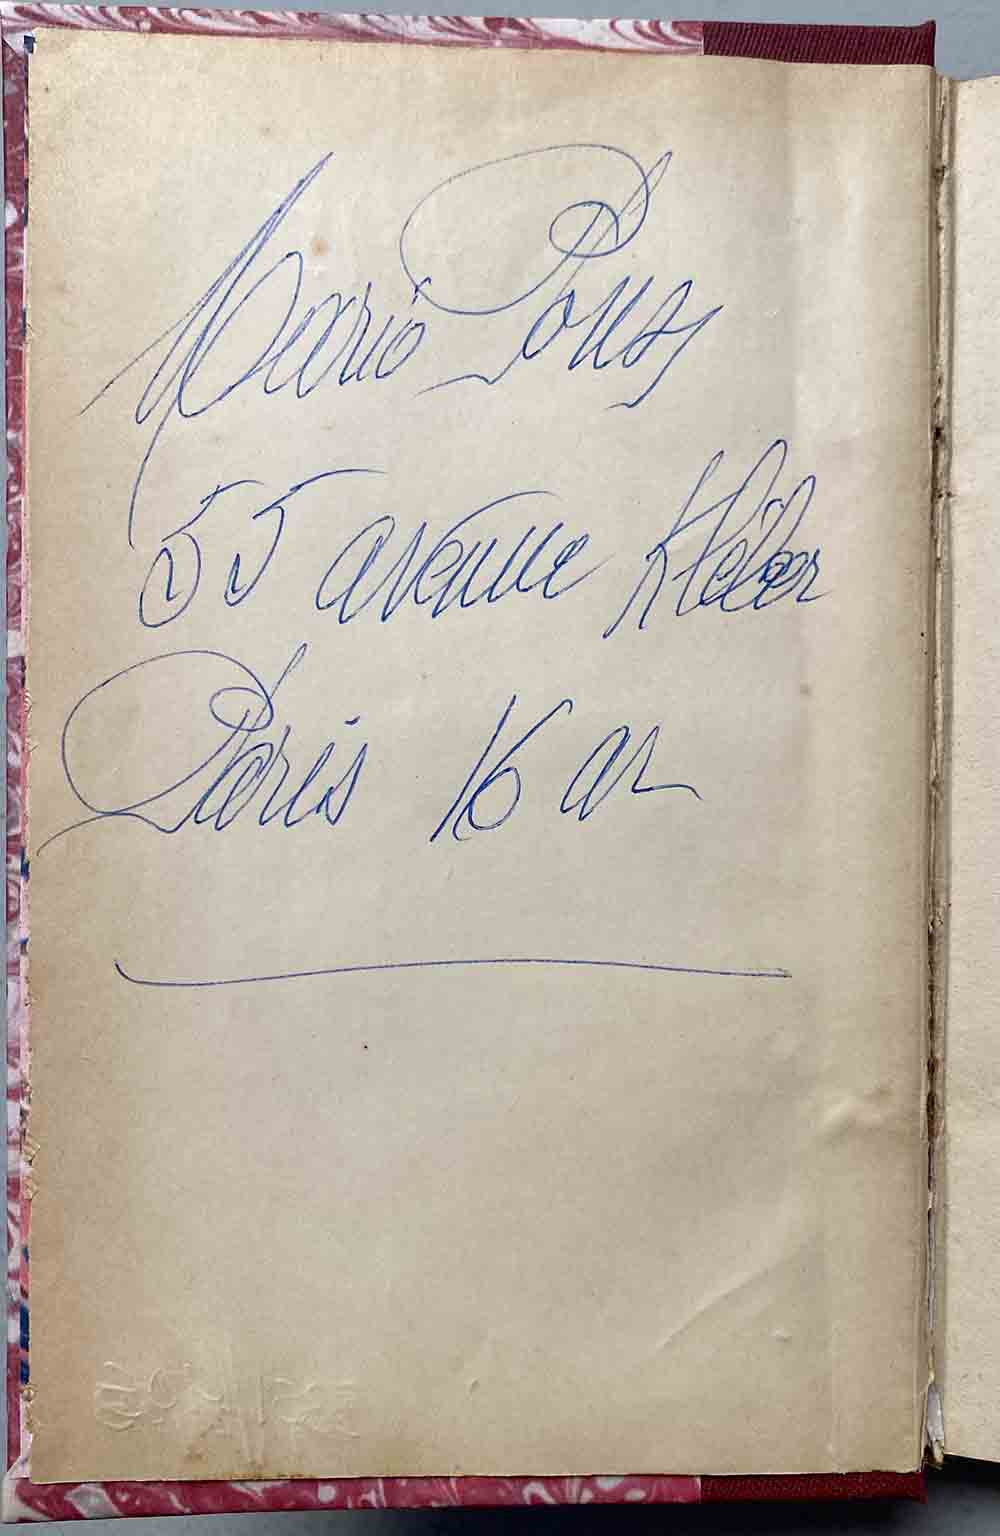 Mario Pons
55 avenue Kléber
Paris 16 ar